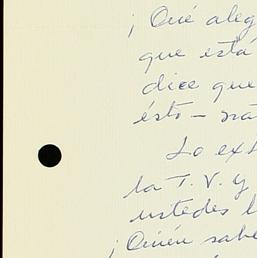 ¡Qué aleg
que está
dice que
ésto –
Lo ext
la T.V. y
ustedes l
¡Quién sabe